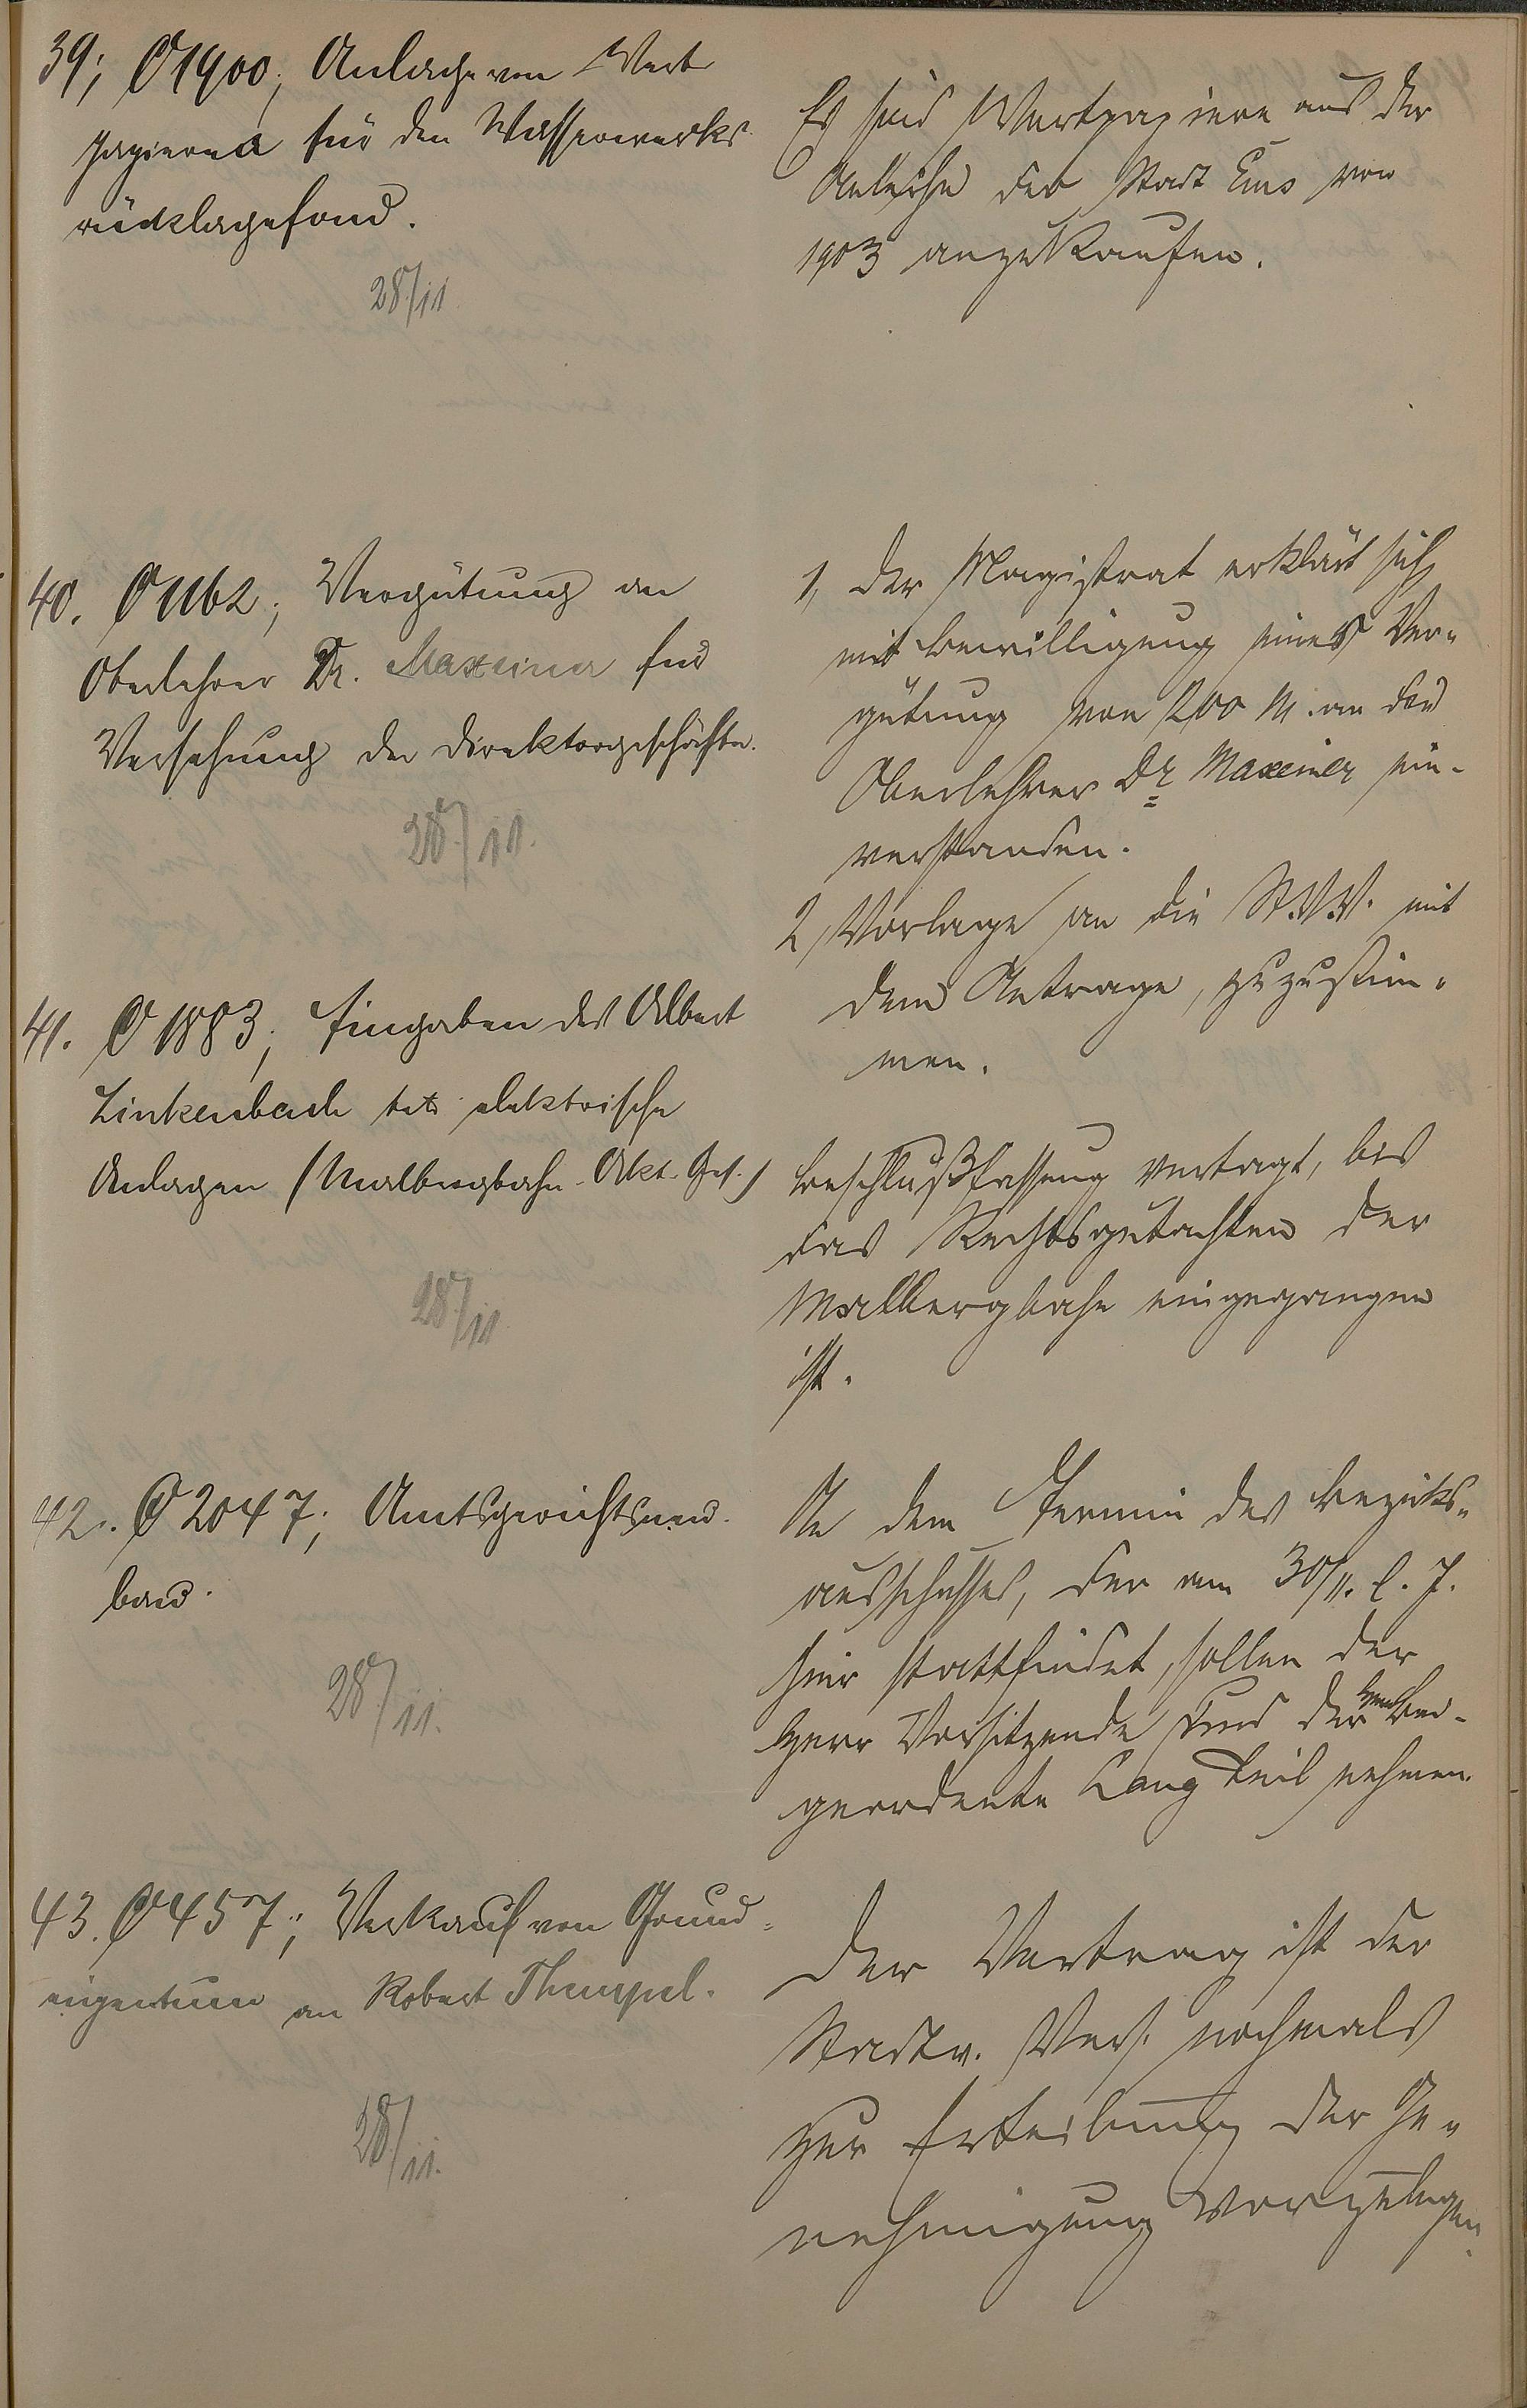 39; O 1900; Anlage von Wert
papieren für den Wasserwerks
rücklagefond.
28/11
Es sind Wertpapiere aus der
Anleihe der Stadt Ems von
1903 anzukaufen.
40. O 1162; Vergütung an
Oberlehrer Dr. Maxeiner für
Versehung der Direktorgeschäfte.
28/11.
1, Der Magistrat erklärt sich
mit Bewilligung einer Ver-
gütung von 200 M. an den
Oberlehrer Dr Maxeiner ein-
verstanden.
2, Vorlage an die St.V.V. mit
dem Antrage, zuzustim-
men.
41. O 1883; Eingaben des Albert
Linkenbach btr. elektrische
Anlagen (Malbergbahn-Akt. Ges.)
28/11
Beschlußfassung vertagt, bis
das Rechtsgutachten der
Malbergbahn eingegangen
ist.
42. O 2047; Amtsgerichtsneu-
bau.
28/11.
An dem Termin des Bezirks-
ausschusses, der am 30/11. l. J.
hier stattfindet, sollen der
Herr Vorsitzende und der Herr Bei-
geordnete Lang teil nehmen.
43. O 457; Verkauf von Grund-
eigentum an Robert
28/11.
Der Vertrag ist der
Stadtv. Vers. nochmals
zur Erteilung der Ge-
nehmigung vorzulegen.